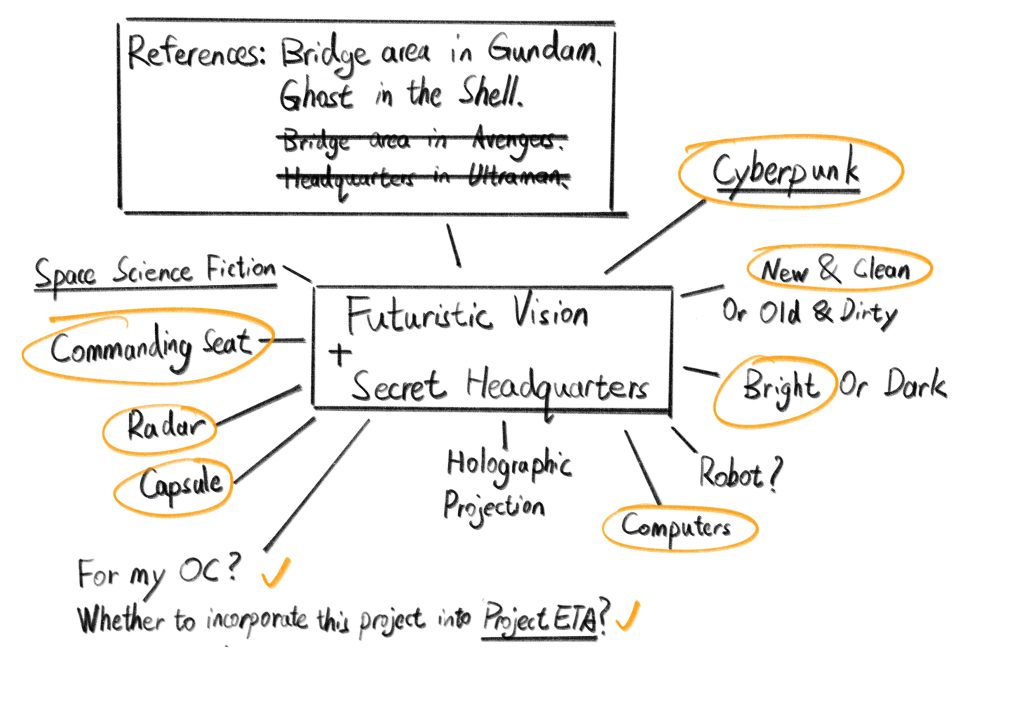 References: Bridge area in Gundam.
Ghost in the Shell.
Bridge area in Avengers.
Headquarters in Ultraman.
Cyberpunk
Space Science Fiction
New & Clean
Or Old & Dirty
Futuristic Vision
+
Secret Headquarters
Commanding Seat
Bright Or Dark
Radar
Capsule
Holographic
Projection
Robot?
Computers
For my OC? ✓
Whether to incorporate this project into Project ETA? ✓